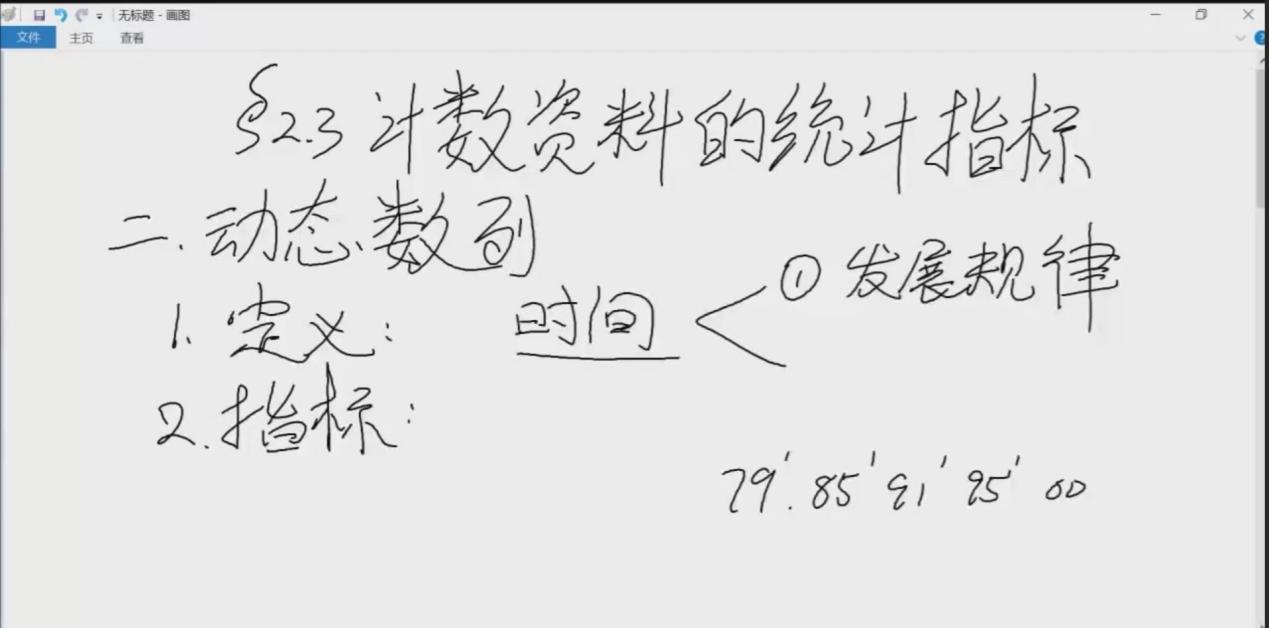 无标题 - 画图
文件 主页 查看
§2.3 计数资料的统计指标
二.动态数列
① 发展规律
1. 定义: 时间
2. 指标:
79'. 85' 91' 95' 00